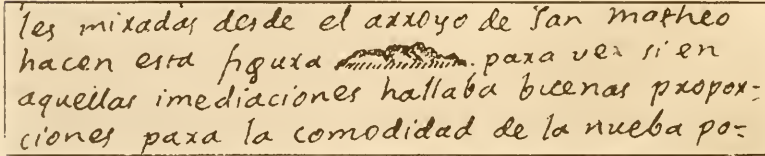 les miradas desde el arroyo de San Matheo
hacen esta figura para ver si en
aquellas imediaciones hallaba buenas propor=
ciones para la comodidad de la nueba po=